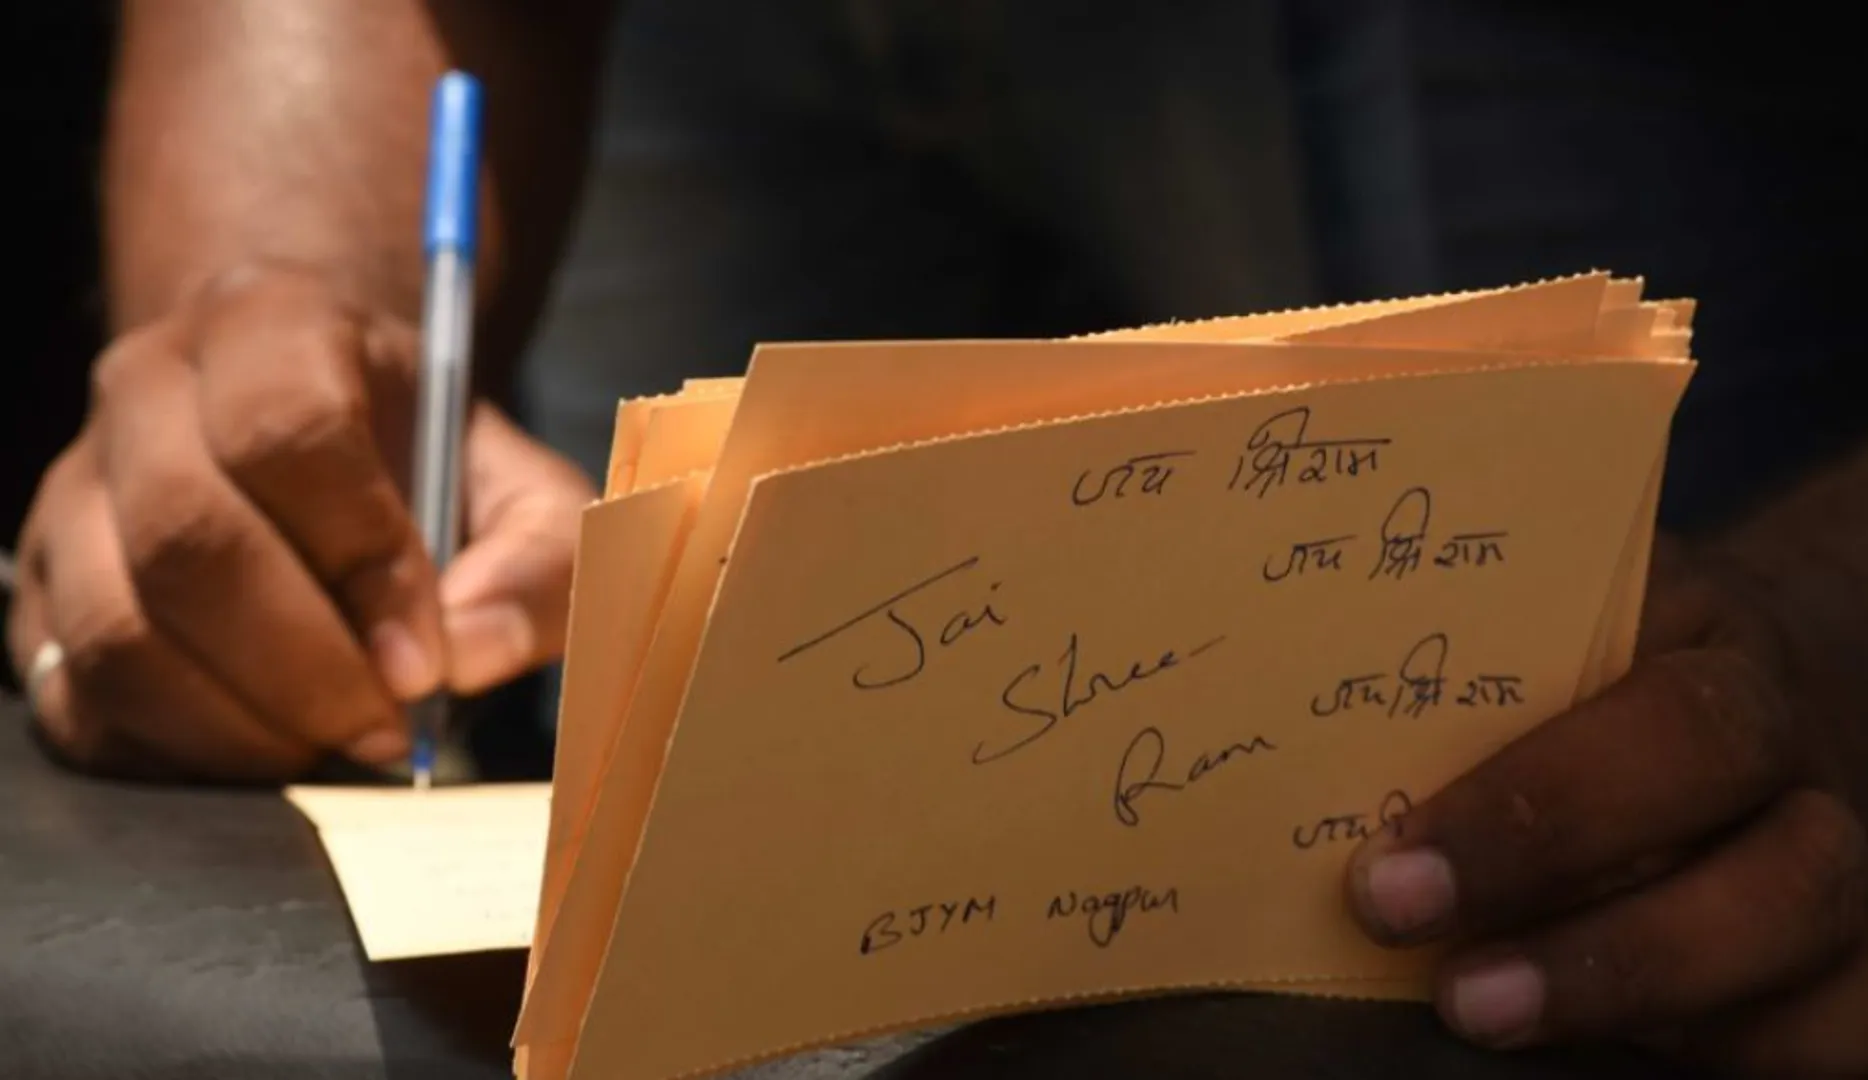 जय श्री राम
जय श्री राम
Jai
Shree
जय श्री राम
Ram
जय
BJYM Nagpur